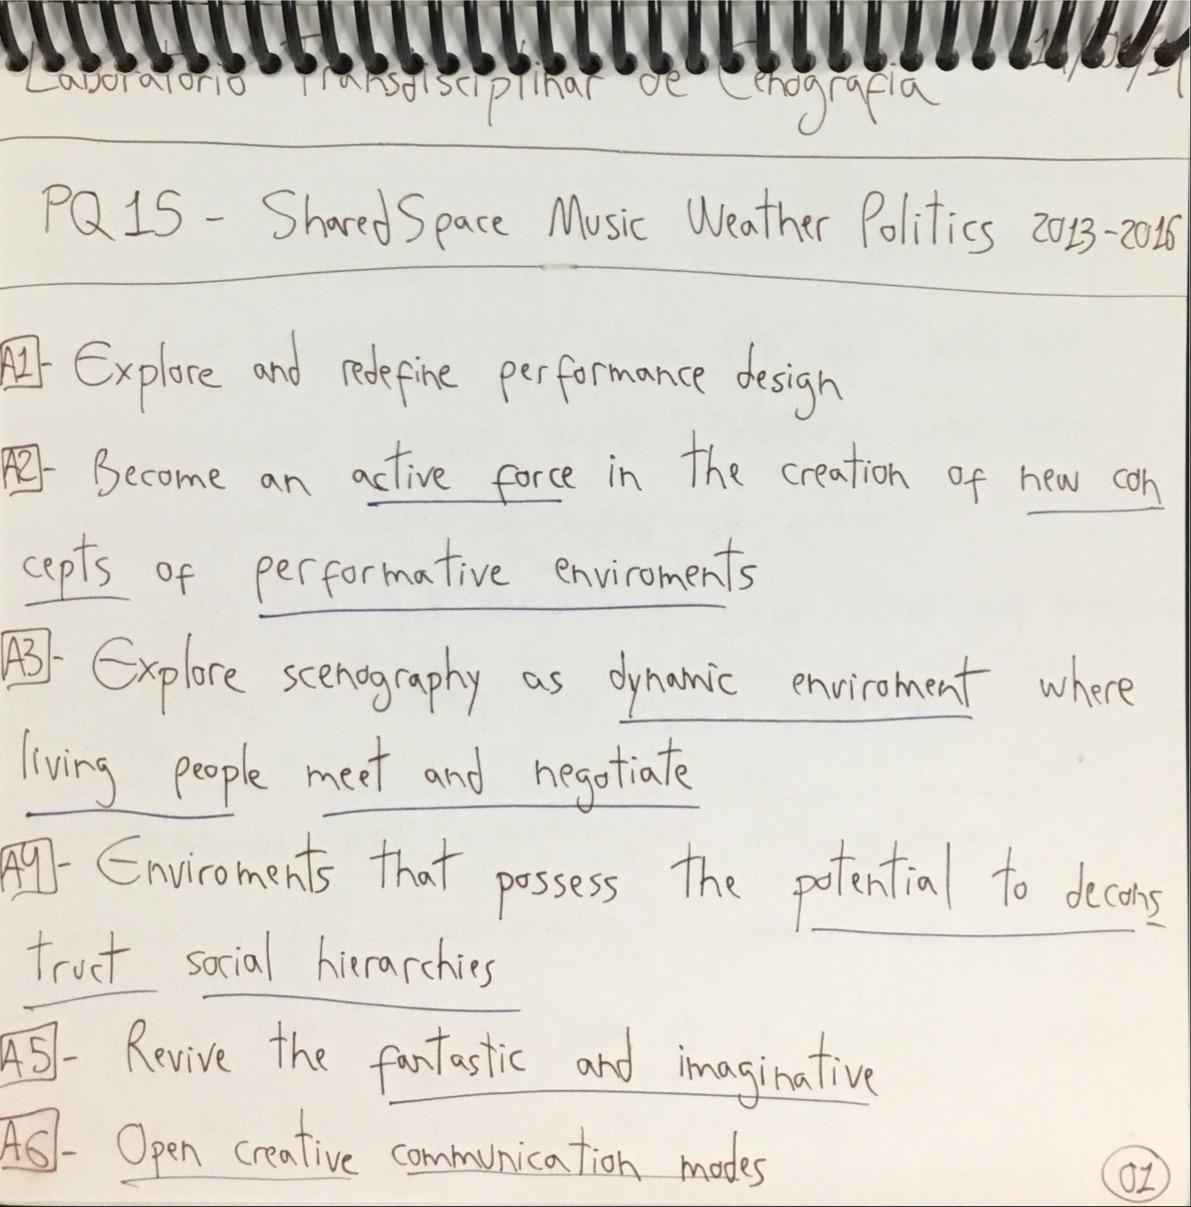 Laboratorio Transdisciplinar de Cenografia
PQ15 - SharedSpace Music Weather Politics 2013-2016
A1- Explore and redefine performance design
A2- Become an active force in the creation of new con
cepts of performative enviroments
A3- Explore scenography as dynamic enviroment where
living people meet and negotiate
A4- Enviroments that possess the potential to decons
truct social hierarchies
A5- Revive the fantastic and imaginative
A6- Open creative communication modes
01